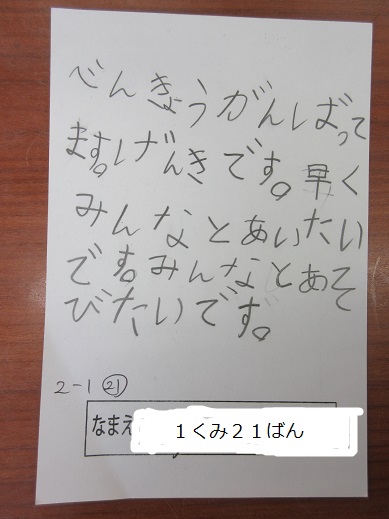 べんきょうがんばって
ます。げんきです。早く
みんなとあいたい
です。みんなとあそ
びたいです。
2-1 ㉑
なまえ １くみ２１ばん